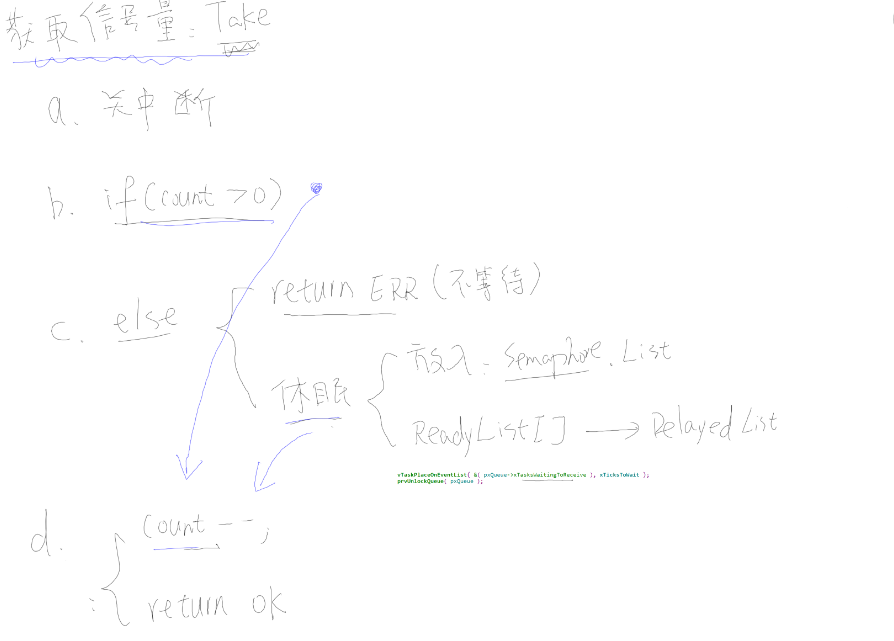 获取信号量：Take
a. 关中断
b. if(count >0)
c. else
return ERR (不等待)
休眠
放入：Semaphore. List
ReadyList[] → Delayed List
vTaskPlaceOnEventList( &( pxQueue->xTasksWaitingToReceive ), xTicksToWait );
prvUnlockQueue( pxQueue );
d. Count--;
return ok